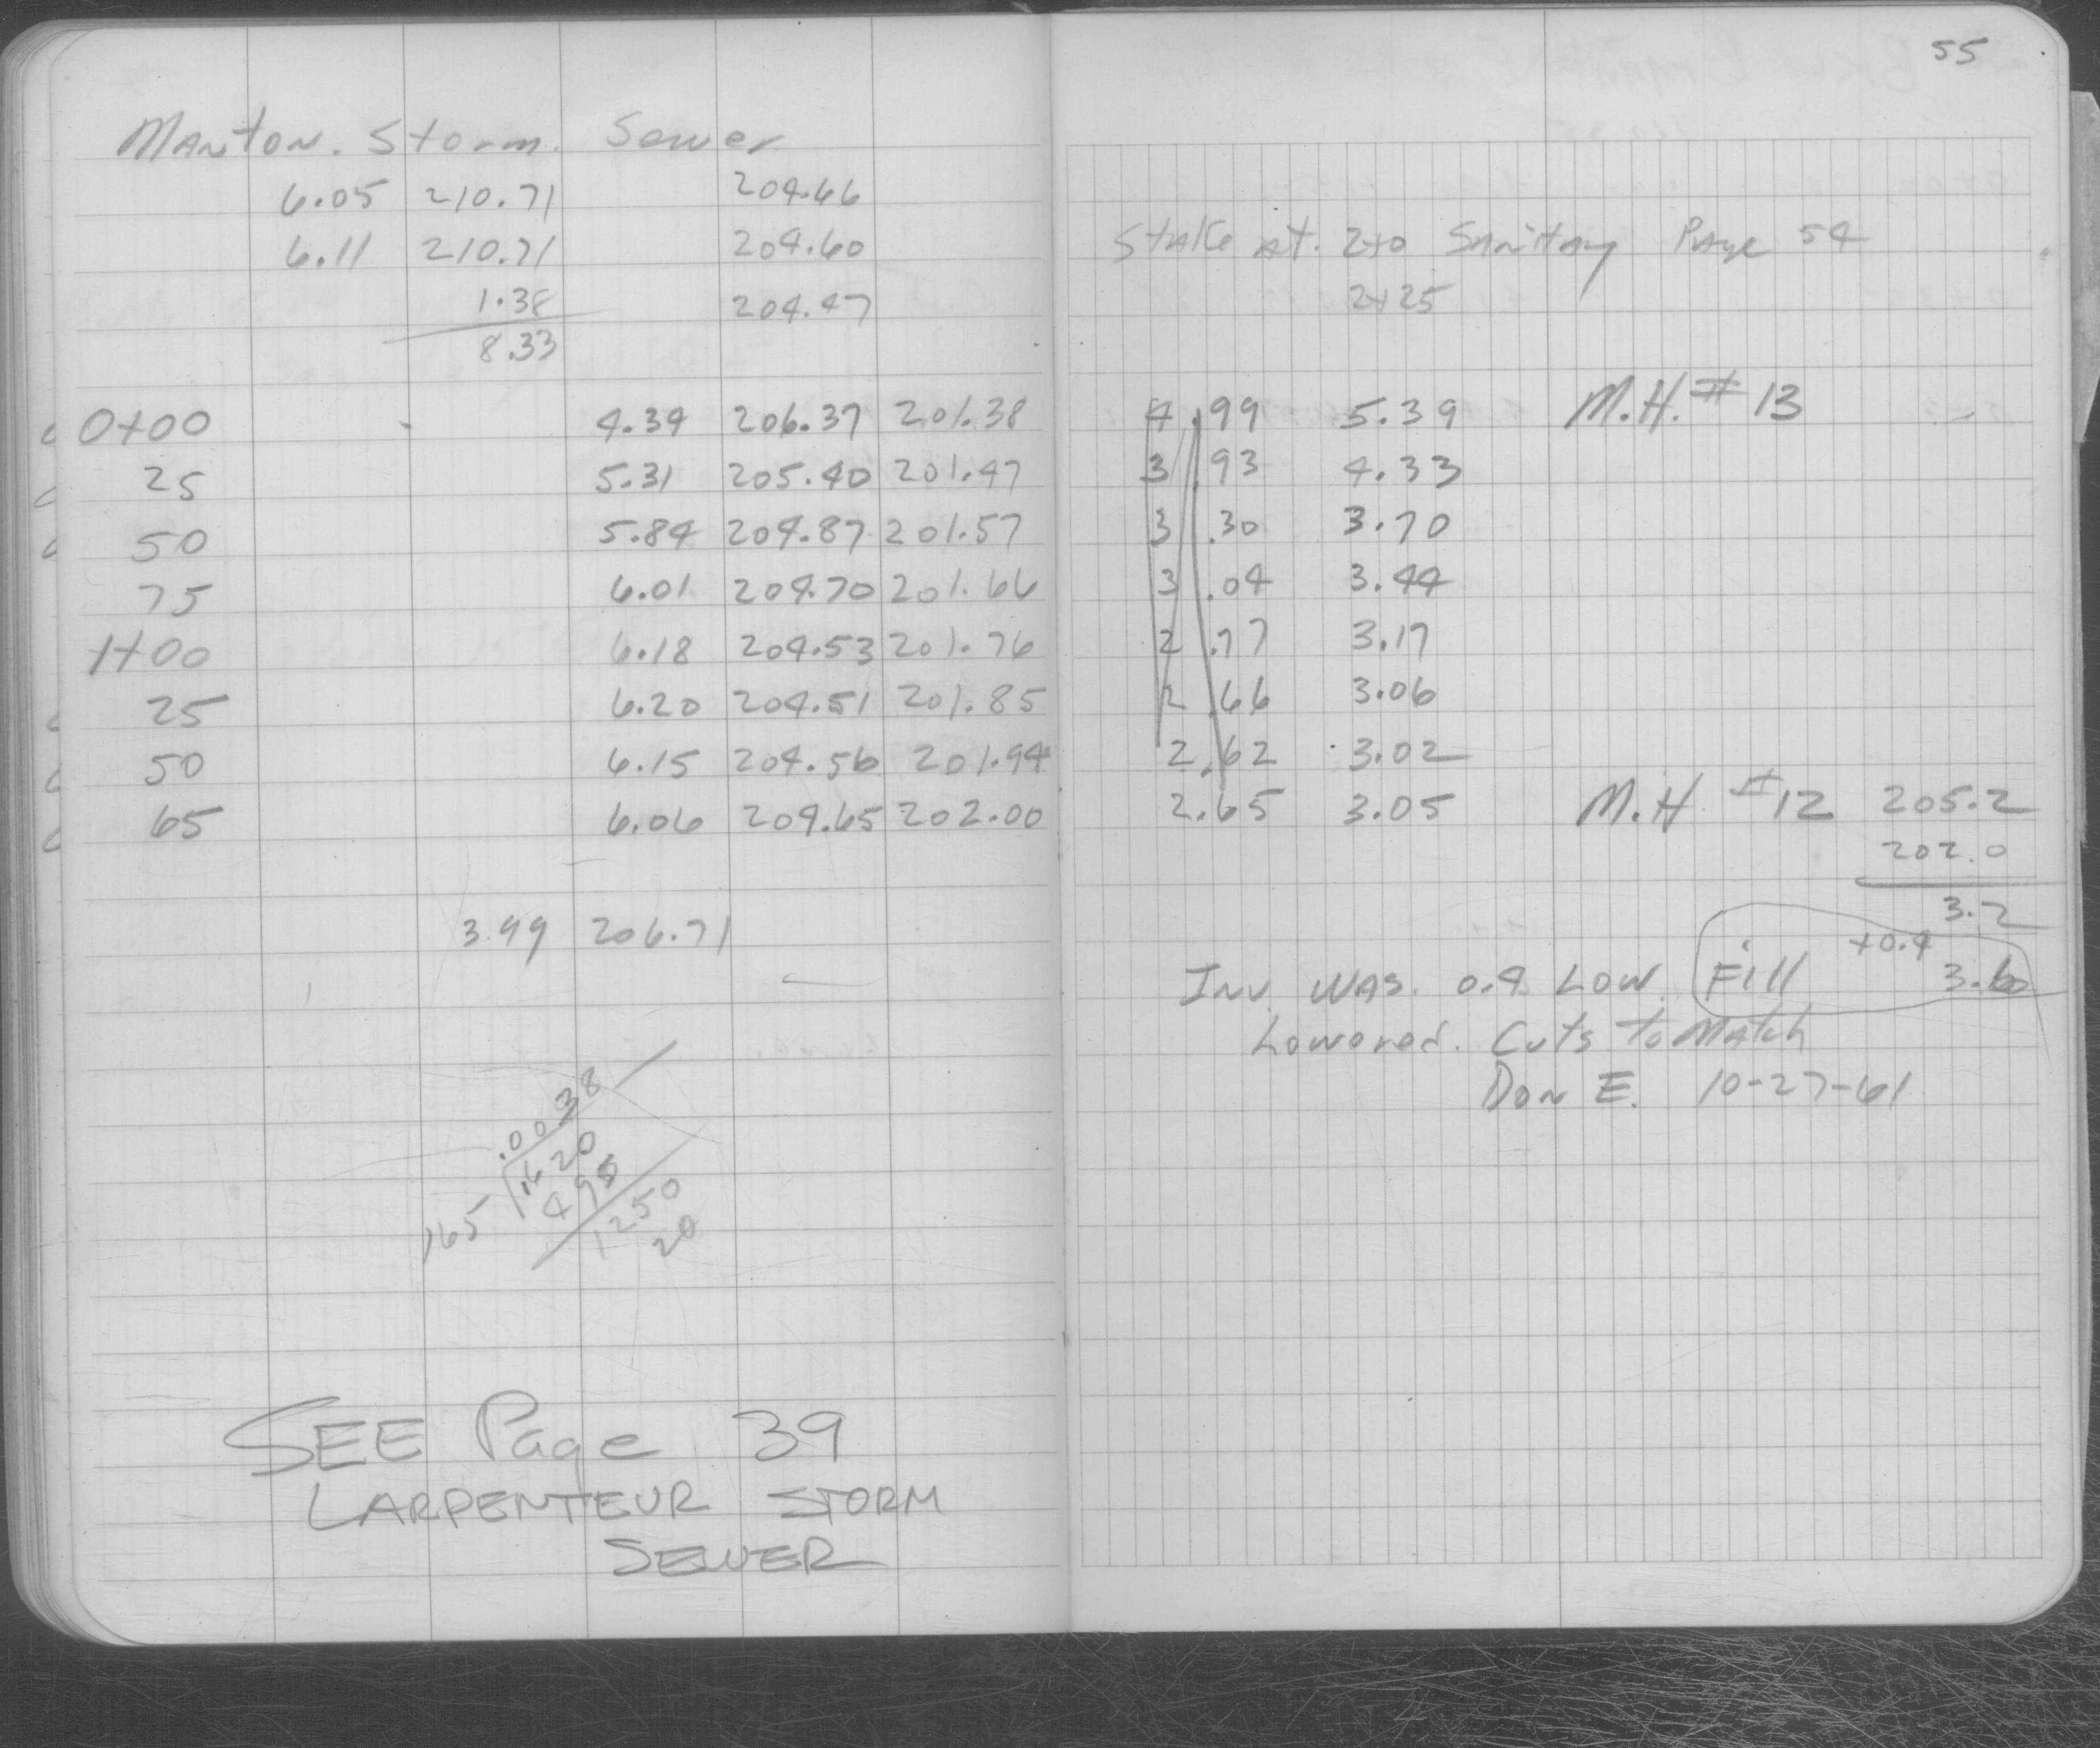 55
Manton. Storm. Sewer
6.05 210.71 204.66
6.11 210.71 204.60 Stake at. 2+0 Sanitary Page 54
1.38 204.47 2+25
8.33
0+00 4.34 206.37 201.38 4.99 5.39 M.H. # 13
25 5.31 205.40 201.47 3.93 4.33
50 5.84 204.87 201.57 3.30 3.70
75 6.01 204.70 201.66 3.04 3.44
1+00 6.18 204.53 201.76 2.77 3.17
25 6.20 204.51 201.85 2.66 3.06
50 6.15 204.56 201.94 2.62 3.02
65 6.06 204.65 202.00 2.65 3.05 M.H. #12 205.2
202.0
3.2
3.99 206.71
+0.4
Inv. was. 0.4 Low. Fill 3.60
Lowered. Cuts to Match
Don E. 10-27-61
.0038
165 .1620
495
1250
20
SEE Page 39
LARPENTEUR STORM
SEWER